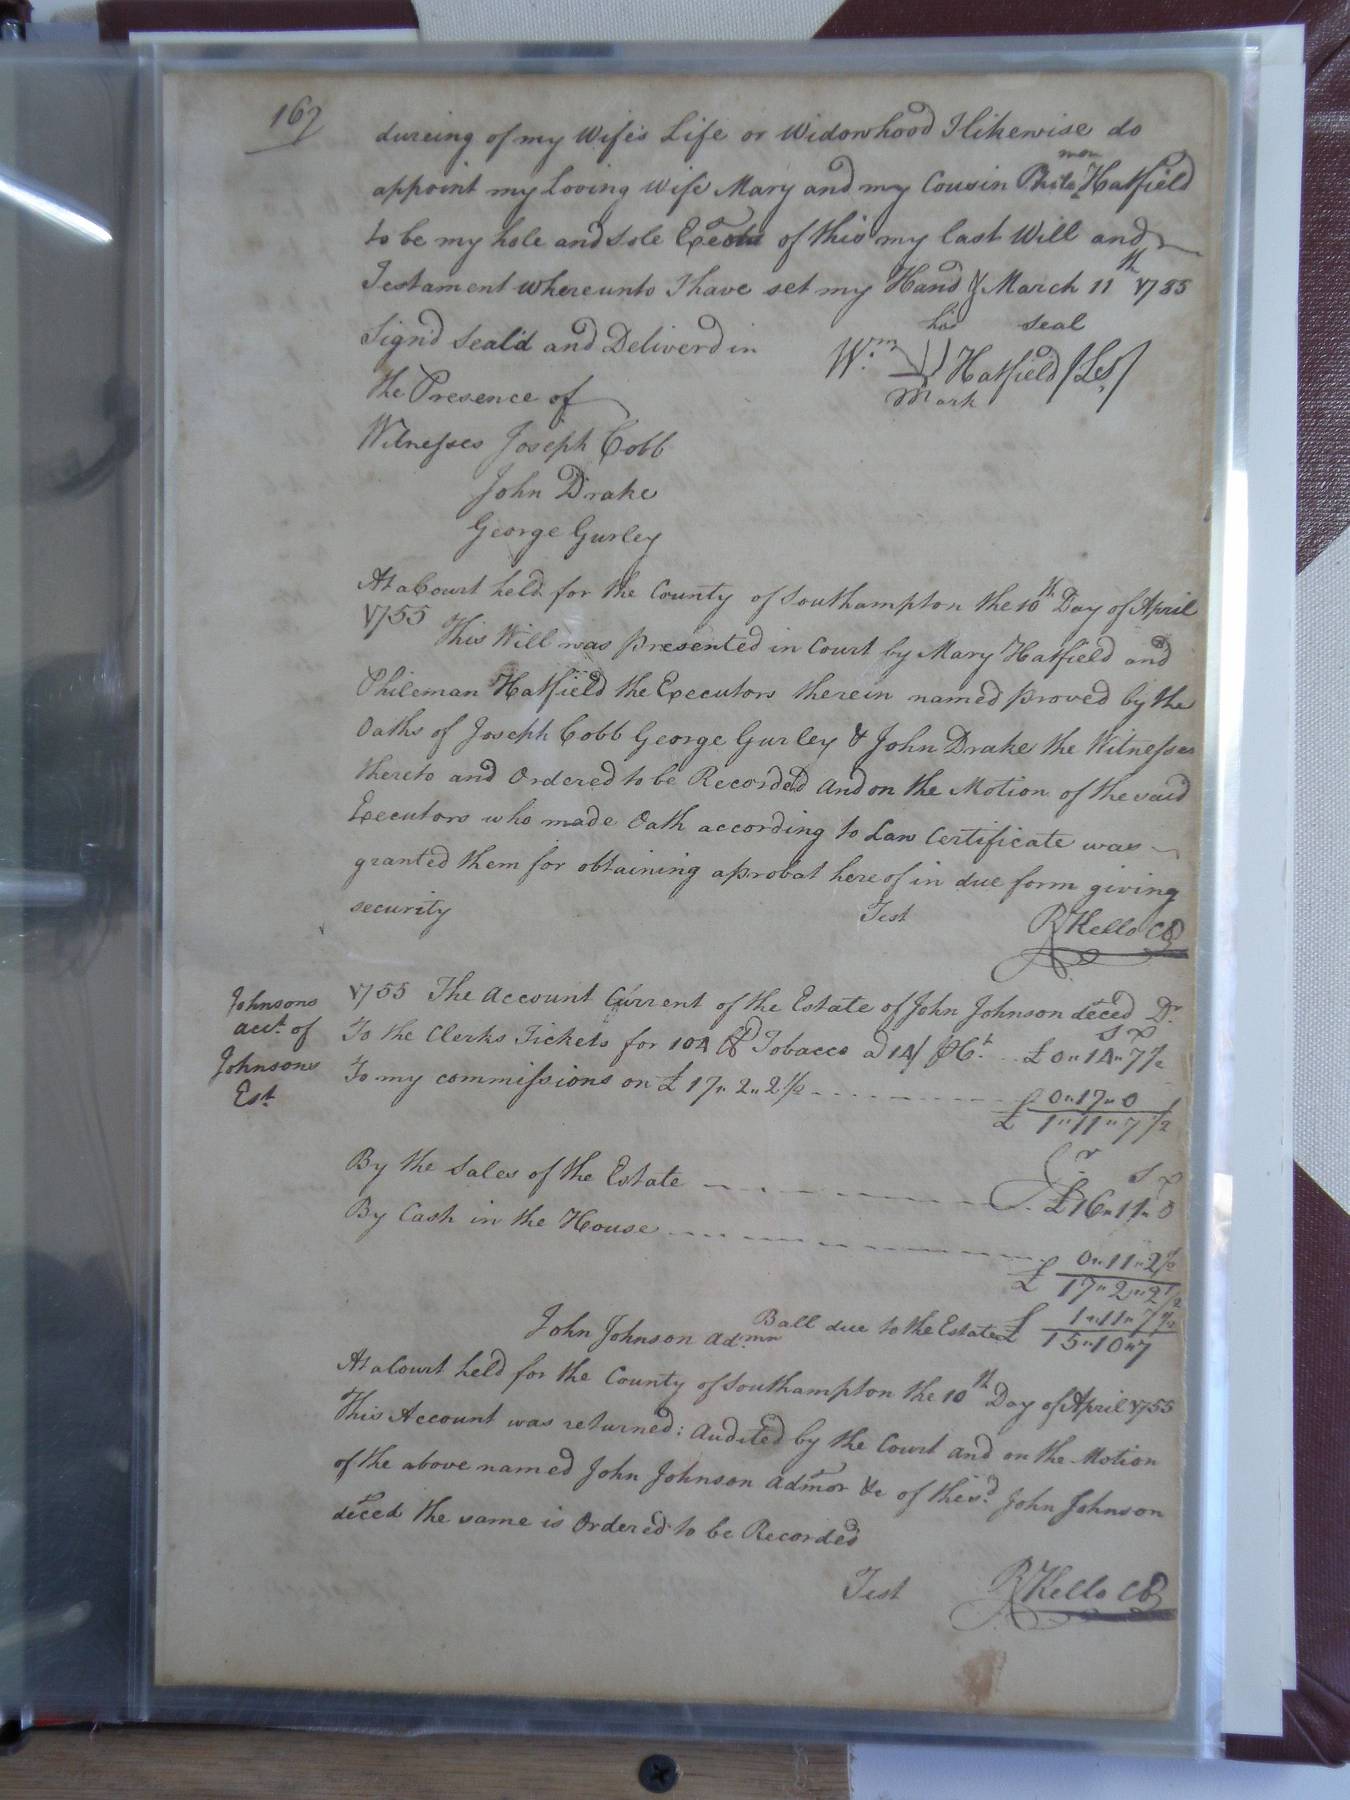 167
dureing of my Wifes Life or Widowhood I likewise do
appoint my Loving Wife Mary and my Cousin Phile^mon Hatfield
to be my hole and Sole Exectrs of this my last Will and
Testament whereunto I have set my Hand March 11th 1755
Sign'd Seal'd and Deliverd in
his seal
the Presence of
Wm. Hatfield (LS)
Mark
Witnesses Joseph Cobb
John Drake
George Gurley
At a Court held for the County of Southampton the 10th Day of April
1755 This Will was presented in Court by Mary Hatfield and
Phileman Hatfield the Executors therein named proved by the
Oaths of Joseph Cobb George Gurley & John Drake the Witnesses
thereto and Ordered to be Recorded And on the Motion of the said
Executors who made Oath according to Law Certificate was
granted them for obtaining a probat hereof in due form giving
security Test R Kello CC
Johnsons
acct. of
Johnsons
Est.
1755 The Account Current of the Estate of John Johnson deced Dr.
To the Clerks Tickets for 104 lb Tobacco a 14/ pCt. .. £0"14"7½
To my commissions on £17"2"2½ 0"17"0
£1"11"7½
Cr.
By the Sales of the Estate £16"11"0
By Cash in the House 0"11"2½
£17"2"2½
1"11"7½
John Johnson Admr. Ball due to the Estate £15"10"7
At a Court held for the County of Southampton the 10th Day of April 1755
This Account was returned: Audited by the Court and on the Motion
of the above named John Johnson Admor &c of the sd. John Johnson
deced the same is Ordered to be Recorded
Test R Kello CC